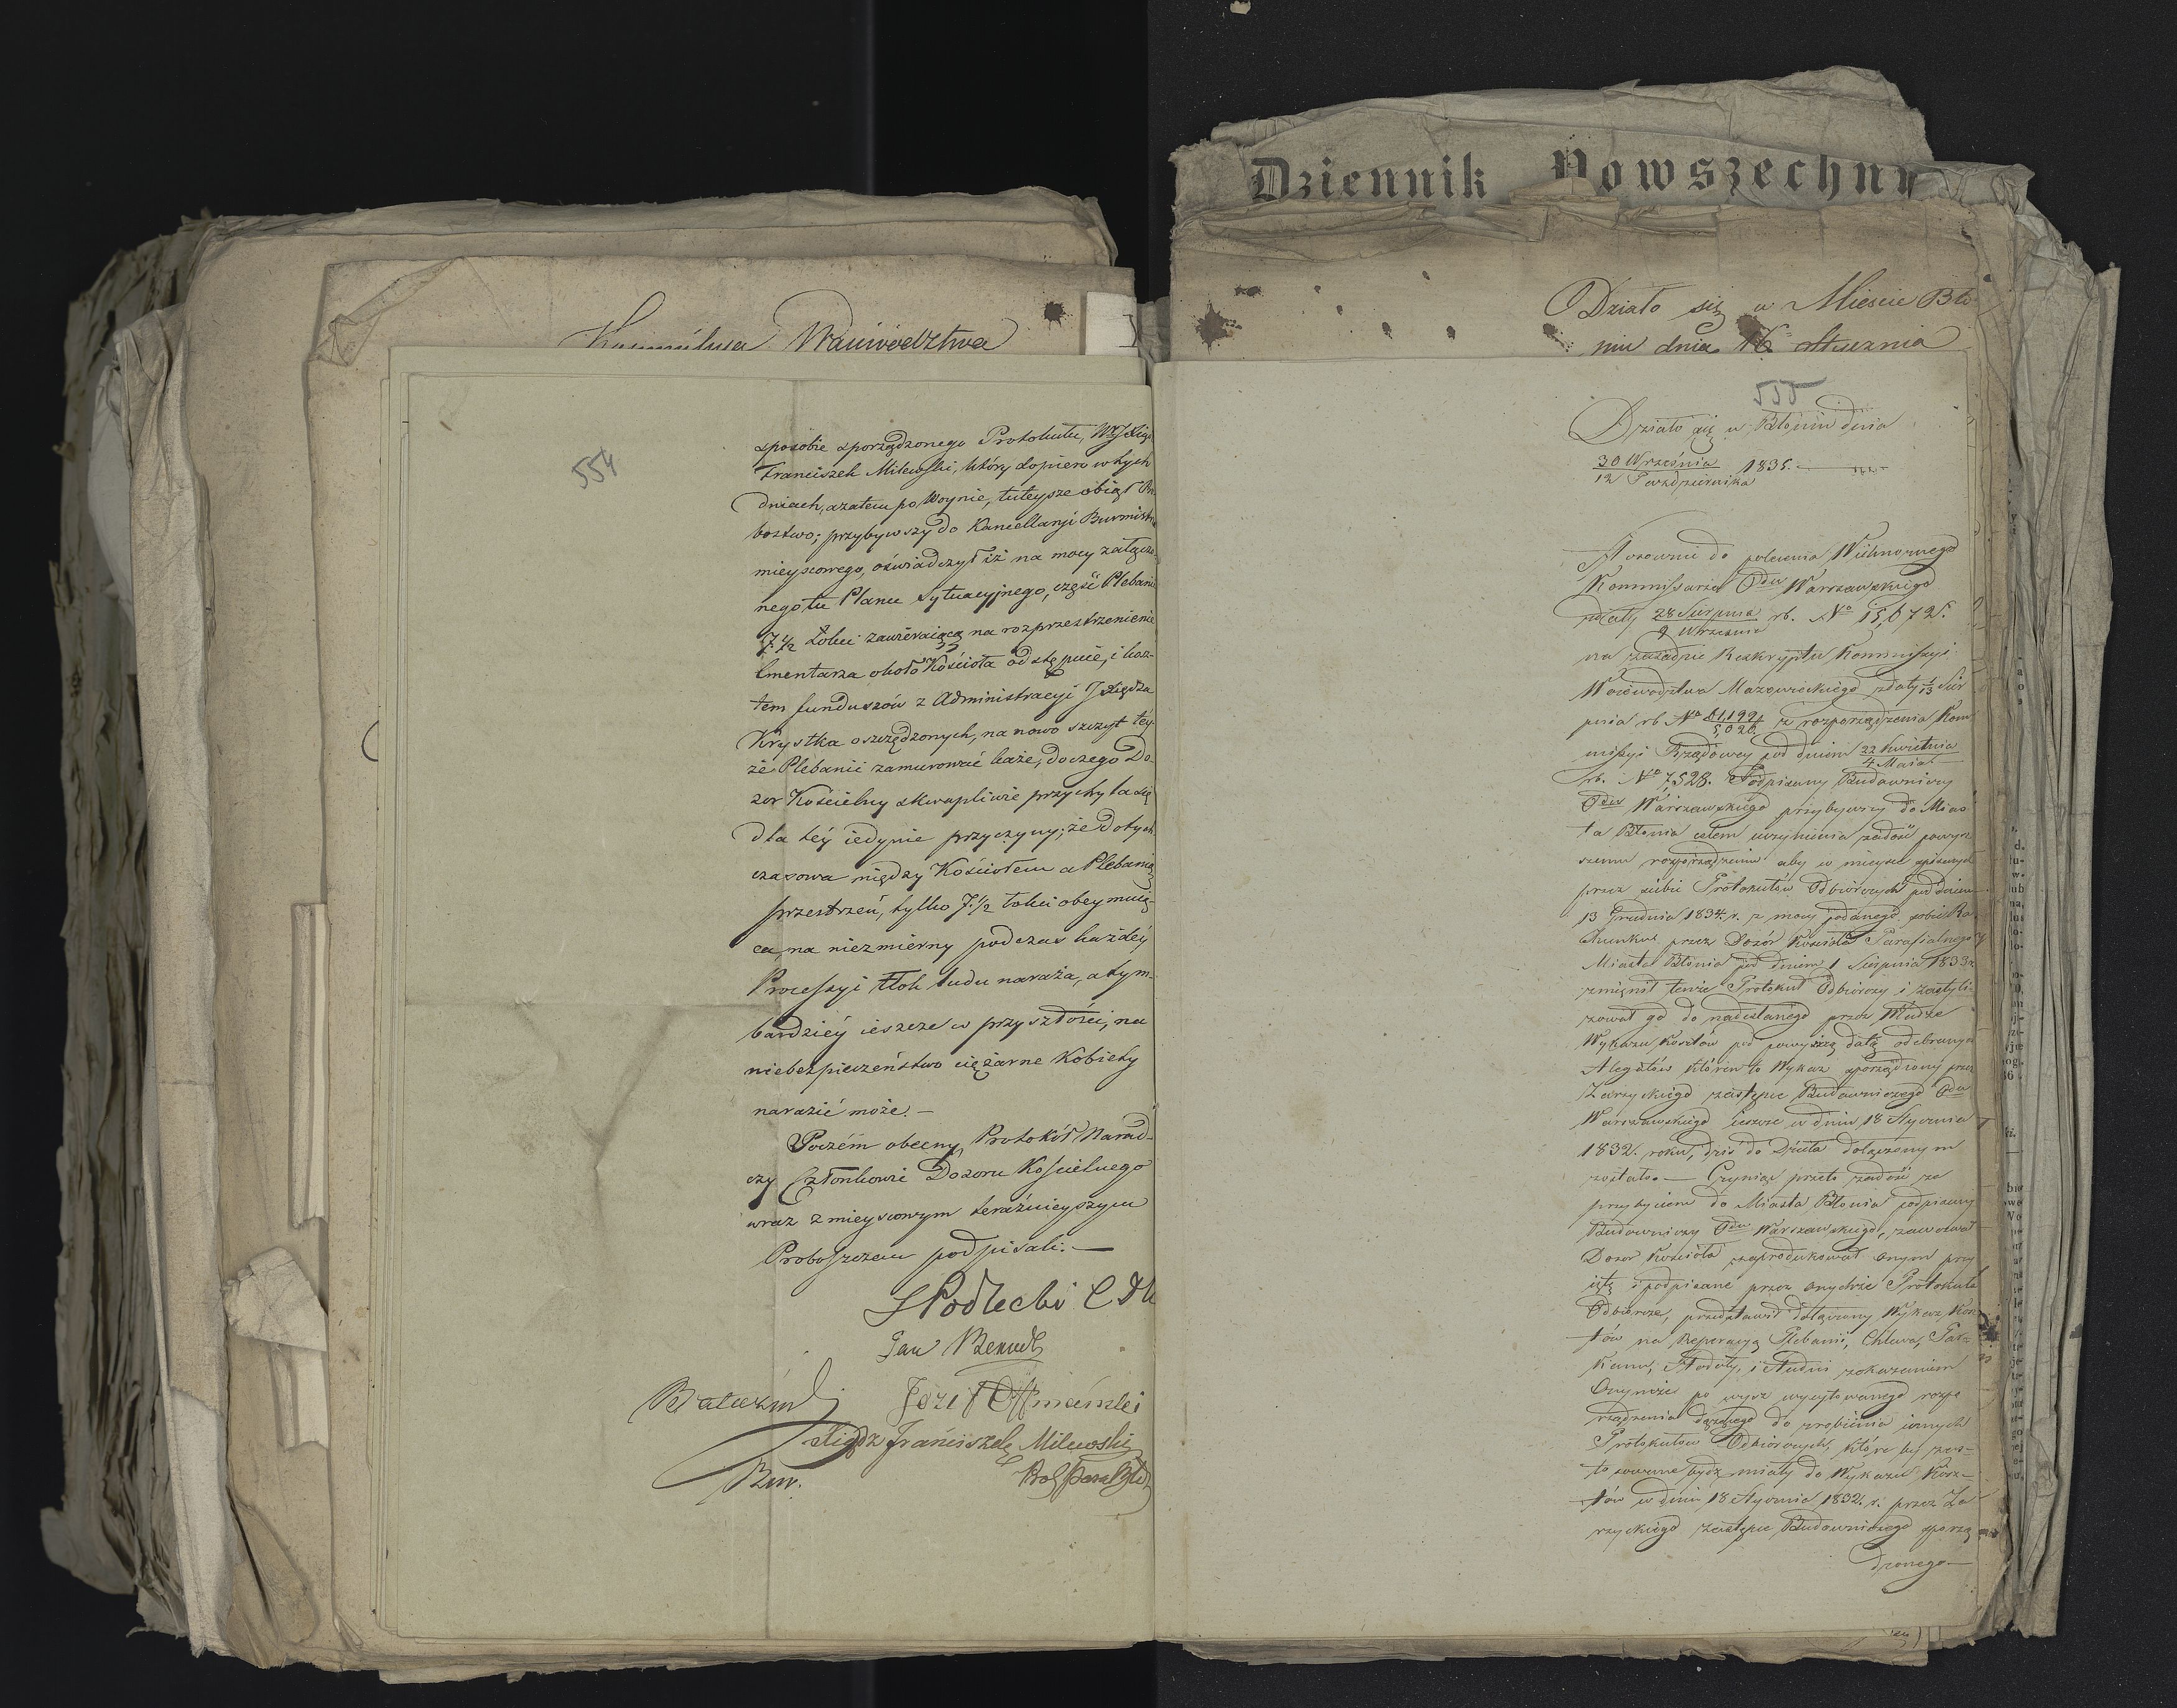 Dziennik Powszechny
Działo się w Mieście Bło
niu dnia 16 Stycznia
Woiewództwa
554
sposobie sporządzonego Protokułu, WJXiądz
Franciszek Milewski, który dopiero w tych
dniach, a zatem po Woynie, tuteysze obiął Pro
bostwo; przybywszy do Kancellaryi Burmistrza
mieyscowego, oświadczył iż na mocy załączo-
nego tu Planu Sytuacyjnego, część Plebanii
7 1/2 Łokci zawieraiącą na rozprzestrzenienie
Cmentarza około Kościoła odstępuie, i kosz-
tem funduszów z Administracyi JXiędza
Krystka oszczędzonych, na nowo szczyt tey-
że Plebanii zamurować każe, do czego Do-
zor Kościelny skwapliwie przychyla się
dla tey iedynie przyczyny; że dotych
czasowa między Kościołem a Plebanią
przestrzeń, tylko 7 1/2 łokci obeymuią-
ca, na niezmierny podczas każdey
Processyi tłok ludu naraża, a tym-
bardziey ieszcze w przyszłości, na
niebezpieczeństwo ciężarne Kobiety
narazić może. —
Poczém obecny Protokół Narad-
czy Członkowie Dozoru Kościelnego
wraz z mieyscowym teraźnieyszym
Proboszczem podpisali. —
SPodlecki CDK
Jan
Józef
Xiądz Franciszek Milewski
Bur.
555
Działo się w Błoniu dnia
30 Września
12 Października 1835.
Stosownie do polecenia Wielmożnego
Kommissarza Odu Warszawskiego
z daty 28 Sierpnia
9 Września rb. No 15,672.
na zasadzie Reskryptu Kommissyi
Woiewództwa Mazowieckiego z daty 1/13 Sier
pnia rb. No 61,199
5,020 z rozporządzenia Kom
missyi Rządowey pod dniem 22 Kwietnia
4 Maia
rb. No 7,528. Podpisany Budowniczy
Odu Warszawskiego przybywszy do Mias
ta Błonia celem uczynienia zadość powyż
szemu rozporządzeniu aby w mieysce spisanych
przez siebie Protokułów Odbiorczych pod dniem
13 Grudnia 1834. r. z mocy podanego sobie Ra
chunku przez Dozór Kościoła Parafialnego
Miasta Błonia pod dniem 1 Sierpnia 1833 r.
zmienił tenże Protokuł Odbiorczy i zastóso
wał go do nadesłanego przez Władze
Wykazu Kosztów pod powyższą datą odebranych
Alegatów który to Wykaz sporządzony przez
Zarzyckiego zastępce Budowniczego Odu
Warszawskiego ieszcze w dniu 18 Stycznia
1832. roku, dziś do Dzieła dołączonym
został. — Czyniąc przeto zadość za
przybyciem do Miasta Błonia podpisany
Budowniczy Odu Warszawskiego, zawezwał
Dozor Kościoła zaprodukował onym przy
ięte i podpisane przez onychże Protokuła
Odbiorcze, przedstawił dołączony Wykaz Kosz
tów na Reperacyą Plebanii, Chlewa, Par-
kanu, Stodoły, i Studni z okazaniem
Onymże po wyżz wycytowanego rozpo
rządzenia dążącego do zrobienia innych
Protokułów Odbiorczych, które by zas-
tosowane bydź miały do Wykazu Kosz-
tów w dniu 18 Stycznia 1832. r. przez Za
rzyckiego zastępce Budowniczego sporzą
dzonego —